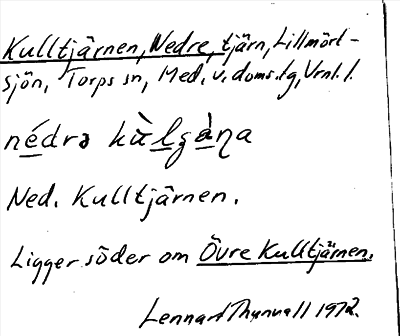 Kulltjärnen, Nedre, tjärn, Lillmört-
sjön, Torps sn, Med. v. doms.lg, Vrnl. l.
nédrə kùlgàɳa
Ned. Kulltjärnen.
Ligger söder om Övre Kulltjärnen.
Lennart Thunvall 1972.